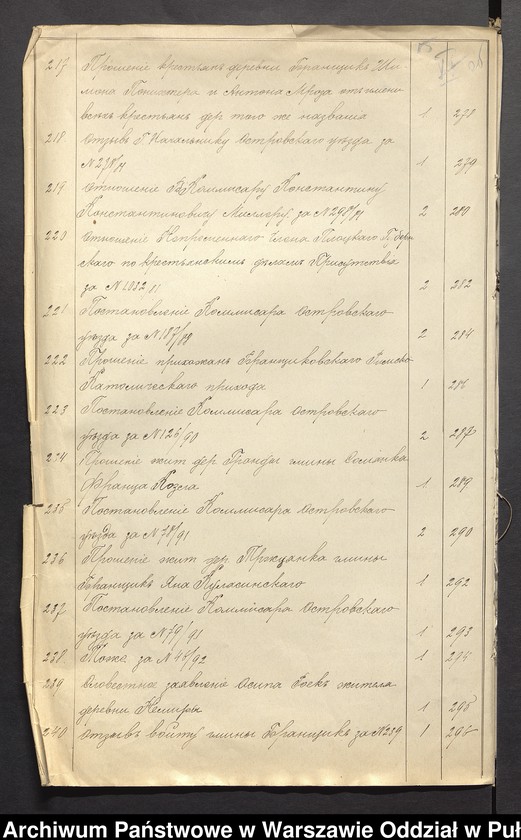 217 Прошеніе крестьянъ деревни Бранщикъ Шимона Понихтера и Антона Мроза отъ имени
всѣхъ крестьянъ дер. того же названія 1 278
218 Отзывъ Г. Начальнику Островскаго уѣзда за
№ 1 279
219 Отношеніе Коммисару Константину
Константиновичу за № 2 280
220 Отношеніе Члена Плоцкаго Губернскаго по крестьянскимъ дѣламъ Присутствія
за № 1032 2 282
221 Постановленіе Коммисара Островскаго
уѣзда за № 187/89 2 284
222 Прошеніе прихожанъ Бранщиковскаго Римско
Католическаго прихода 1 286
223 Постановленіе Коммисара Островскаго
уѣзда за № 126/90 2 287
234 Прошеніе жит. дер. Гронды гмины Сомянка
Франца Козла 1 289
235 Постановленіе Коммисара Островскаго
уѣзда за № 78/91 2 290
236 Прошеніе жит. дер. гмины
Бранщикъ Яна 1 292
237 Постановленіе Коммисара Островскаго
уѣзда за № 79/91 1 293
238 Тоже за № 46/92 1 294
239 Словестное заявленіе Осипа жителя
деревни 1 295
240 Отзывъ войту гмины Бранщикъ за № 239 1 296
Archiwum Państwowe w Warszawie Oddział w Puł